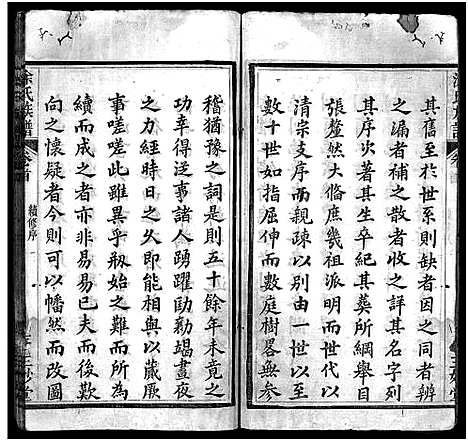 其舊至於世系則缺者因之同者辨
之漏者補之散者收之詳其名字列
其序次著其生卒紀其葬所綱舉目
張釐然大脩庶幾祖派明而世代以
清宗支序而親疎以別由一世以至
數十世如指屈伸而數庭樹畧無參
稽猶豫之詞則五十餘年未竟之
功幸得泛事諸人踴躍勤竭晝夜
之力經時日之久即能相與以蕆厥
事嗟嗟此雖異乎剏始之難而所為
續而成之者亦非易易已夫而後歎
向之懷疑者今則可以幡然而改圖
涂氏族譜
卷首
續修序